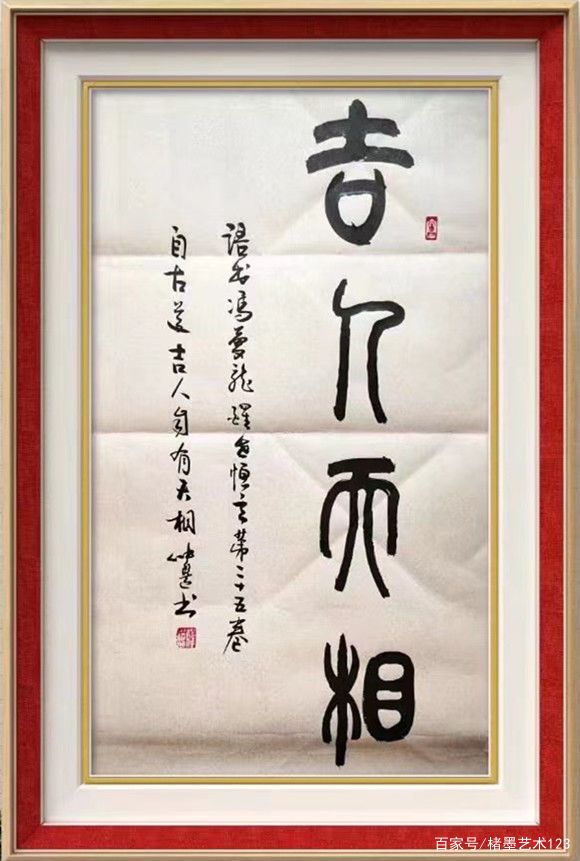 吉人天相
语出冯梦龙醒世恒言第二十五卷
自古道吉人自有天相
书
百家号/楮墨艺术123